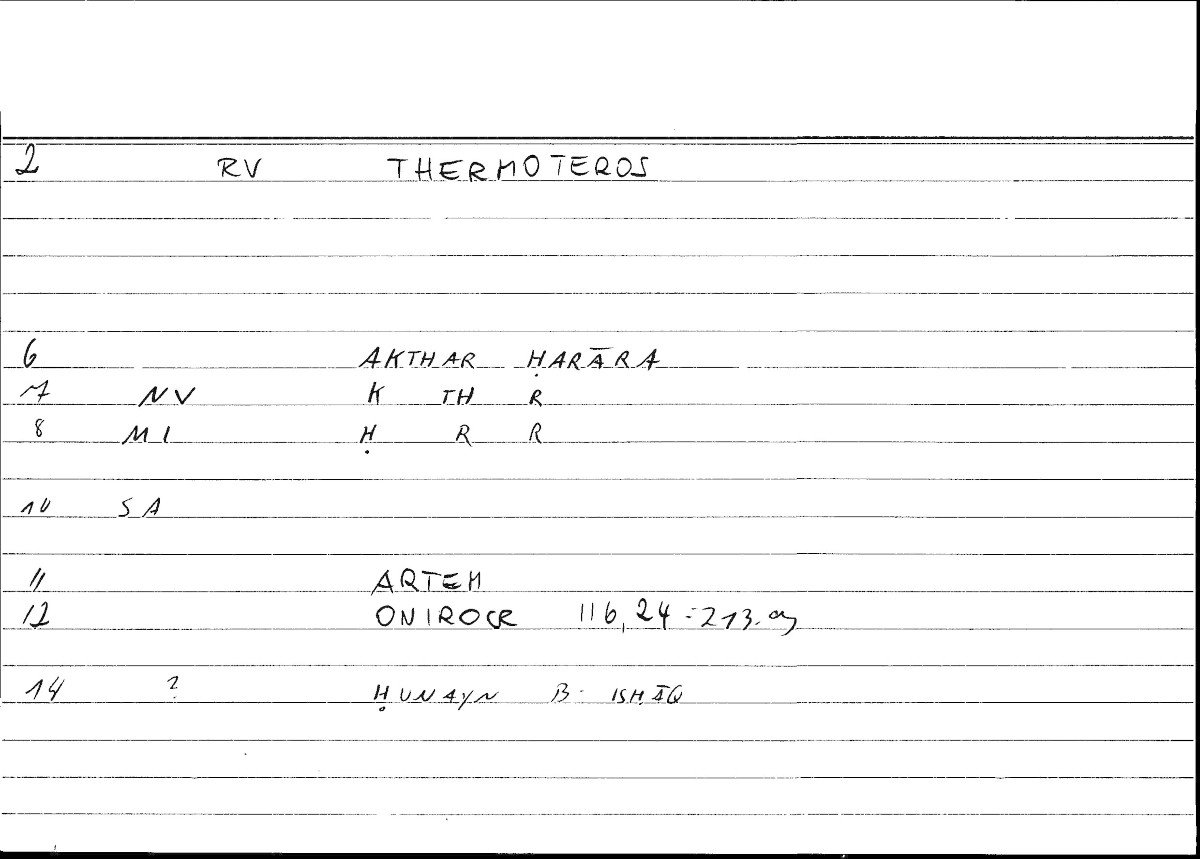 2 RV THERMOTEROS
6 AKTHAR ḤARĀRA
7 NV K TH R
8 MI Ḥ R R
10 SA
11 ARTEM
12 ONIROCR 116,24 = 213.
14 ? ḤUNAYN B. ISḤĀQ